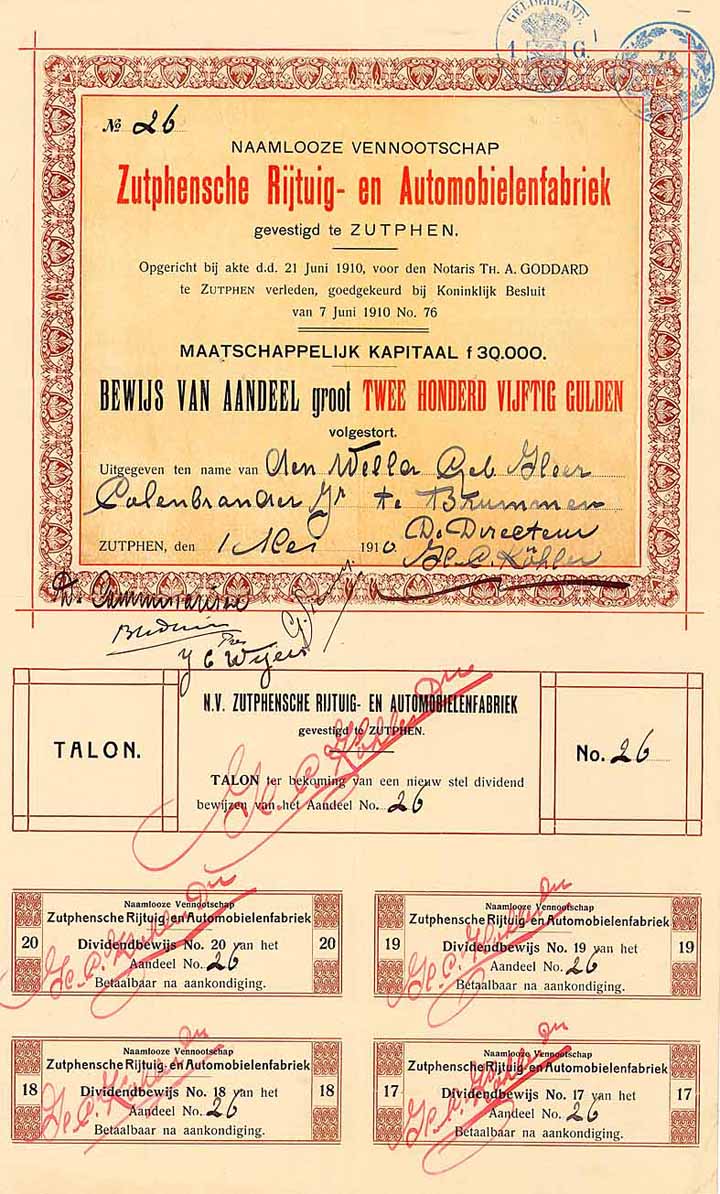 GELDERLAND.
1 G.
TE
№ 26
NAAMLOOZE VENNOOTSCHAP
Zutphensche Rijtuig- en Automobielenfabriek
gevestigd te ZUTPHEN.
Opgericht bij akte d.d. 21 Juni 1910, voor den Notaris TH. A. GODDARD
te ZUTPHEN verleden, goedgekeurd bij Koninklijk Besluit
van 7 Juni 1910 No. 76
MAATSCHAPPELIJK KAPITAAL f 30.000.
BEWIJS VAN AANDEEL groot TWEE HONDERD VIJFTIG GULDEN
volgestort.
Uitgegeven ten name van den Geb
Colenbrander Jr te Brummen
De Directeur
ZUTPHEN, den 1 Mei 1910
H. C. Köhler
De Commissarise
N.V. ZUTPHENSCHE RIJTUIG- EN AUTOMOBIELENFABRIEK
gevestigd te ZUTPHEN.
TALON.
No. 26
TALON ter bekoming van een nieuw stel dividend
bewijzen van het Aandeel No. 26
H. C. Köhler Dir
Naamlooze Vennootschap
Zutphensche Rijtuig- en Automobielenfabriek
20 Dividendbewijs No. 20 van het 20
Aandeel No. 26
Betaalbaar na aankondiging.
H. C. Köhler Dir
Naamlooze Vennootschap
Zutphensche Rijtuig- en Automobielenfabriek
19 Dividendbewijs No. 19 van het 19
Aandeel No. 26
Betaalbaar na aankondiging.
H. C. Köhler Dir
Naamlooze Vennootschap
Zutphensche Rijtuig- en Automobielenfabriek
18 Dividendbewijs No. 18 van het 18
Aandeel No. 26
Betaalbaar na aankondiging.
H. C. Köhler Dir
Naamlooze Vennootschap
Zutphensche Rijtuig- en Automobielenfabriek
17 Dividendbewijs No. 17 van het 17
Aandeel No. 26
Betaalbaar na aankondiging.
H. C. Köhler Dir